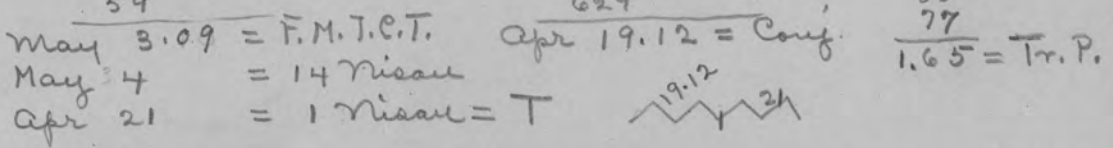 59 629
May 3.09 = F.M.J.C.T. Apr 19.12 = Conj. 77
1.65 = Tr. P.
May 4 = 14 Nisan
Apr 21 = 1 Nisan = T 19.12 21